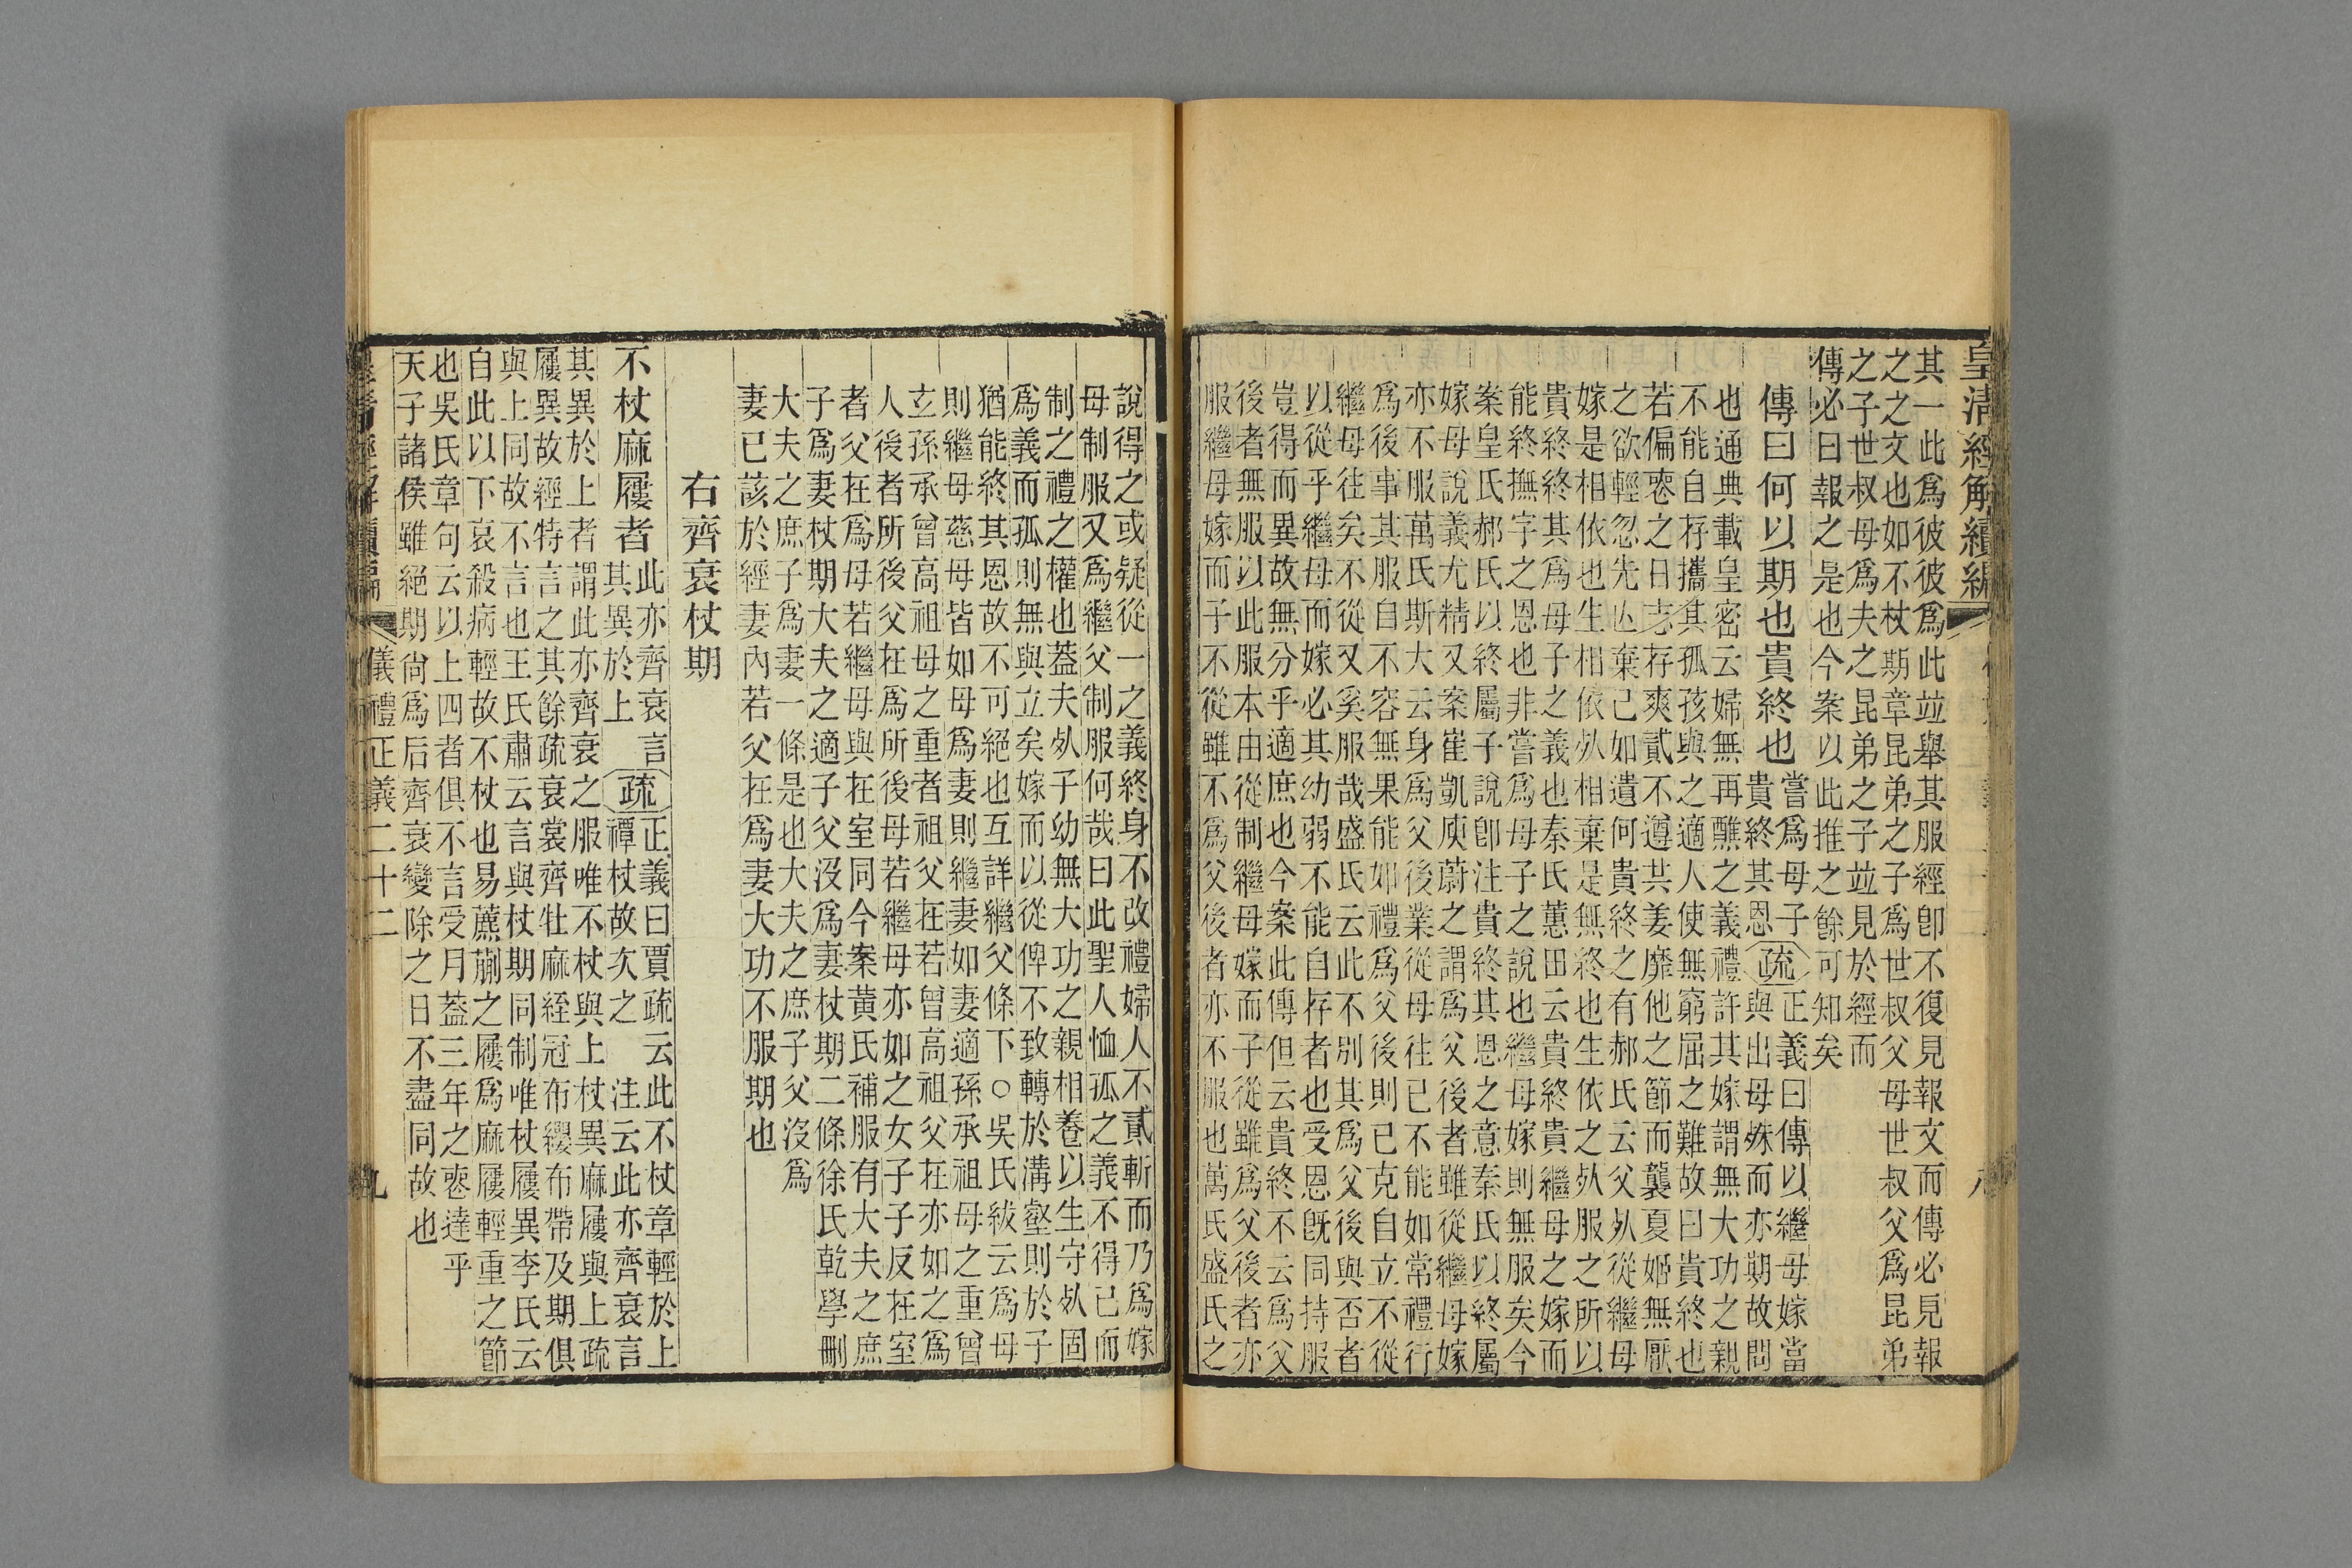 皇清經解續編
其一此爲彼彼爲此竝舉其服經卽不復見報文而傳必見報
之之文也如不杖期章昆弟之子爲世叔父母世叔父爲昆弟
之子世叔母爲夫之昆弟之子竝見於經而
傳必曰報之是也今案以此推之餘可知矣
傳曰何以期也貴終也
嘗爲母子
貴終其恩
疏
正義曰傳以繼母嫁當
與出母殊而亦期故問
也通典載皇密云婦無再醮之義禮許其嫁謂無大功之親
不能自存攜其孤孩與之適人使無窮屈之難故曰貴終也
若偏喪之日志存爽貳不遵共姜靡他之節而襲夏姬無厭
之欲輕忽先亾棄己如遺何貴終之有郝氏云父𣦸從繼母
嫁是相依也生相依𣦸相棄是無終也生依之𣦸服之所以
貴終終其爲母子之義也秦氏蕙田云貴終貴繼母之嫁而
能終撫字之恩也非嘗爲母子之說也繼母嫁則無服矣今
案皇氏郝氏以終屬子說卽注貴終其恩之意秦氏以終屬
嫁母說義尤精又案崔凱庾蔚之謂爲父後者雖從繼母嫁
亦不服萬氏斯大云身爲父後業從母往已不能如常禮行
爲後事其服自不容無果能如禮爲父後則已克自立不從
繼母往矣不從又奚服哉盛氏云此不別其爲父後與否者
以從乎繼母而嫁必其幼弱不能自存者也受恩旣同持服
豈得而異故無分乎適庶也今案此傳但云貴終不云爲父
後者無服以此服本由從制繼母嫁而子從雖爲父後者亦
服繼母嫁而子不從雖不爲父後者亦不服也萬氏盛氏之
說得之或疑從一之義終身不改禮婦人不貳斬而乃爲嫁
母制服又爲繼父制服何哉曰此聖人恤孤之義不得已而
制之禮之權也蓋夫𣦸子幼無大功之親相卷以生守𣦸固
爲義而孤則無與立矣嫁而以從俾不致轉於溝壑則於子
猶能終其恩故不可絕也互詳繼父條下○吳氏紱云爲母
則繼母慈母皆如母爲妻則繼妻如妻適孫承祖母之重曾
玄孫承曾高祖母之重者祖父在若曾高祖父在亦如之爲
人後者所後父在爲所後母若繼母亦如之女子子反在室
者父在爲母若繼母與在室同今案黃氏補服有大夫之庶
子爲妻杖期大夫之適子父沒爲妻杖期二條徐氏乾學刪
大夫之庶子爲妻一條是也大夫之庶子父沒爲
妻已該於經妻內若父在爲妻大功不服期也
右齊衰杖期
不杖麻屨者
此亦齊衰言
其異於上
疏
正義曰賈疏云此不杖章輕於上
禫杖故次之 注云此亦齊衰言
其異於上者謂此亦齊衰之服唯不杖與上杖異麻屨與上疏
屨異故經特言之其餘疏衰裳齊牡麻絰冠布纓布帶及期俱
與上同故不言也王氏肅云言與杖期同制唯杖屨異李氏云
自此以下哀殺病輕故不杖也易藨蒯之屨爲麻屨輕重之節
也吳氏章句云以上四者俱不言受月蓋三年之喪達乎
天子諸侯雖絕期尚爲后齊衰變除之日不盡同故也
皇清經解續編 儀禮正義二十二 九